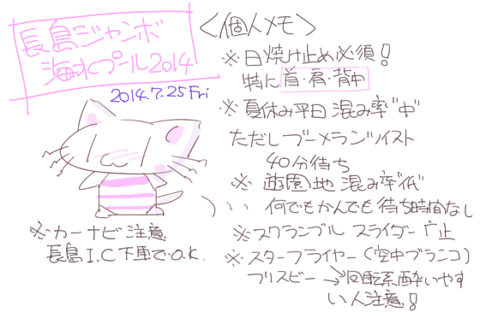 長島ジャンボ
海水プール2014
2014.7.25 Fri
※カーナビ注意
長島I.C下車でo.k.
<個人メモ>
※日焼け止め必須!
特に首・肩・背中
※夏休み平日 混み率"中"
ただしブーメランツイスト
40分待ち
※遊園地 混み率"低"
何でもかんでも待ち時間なし
※スクランブル スライダー 中止
※スターフライヤー(空中ブランコ)
フリスビー→回転系酔いやす
い人注意!